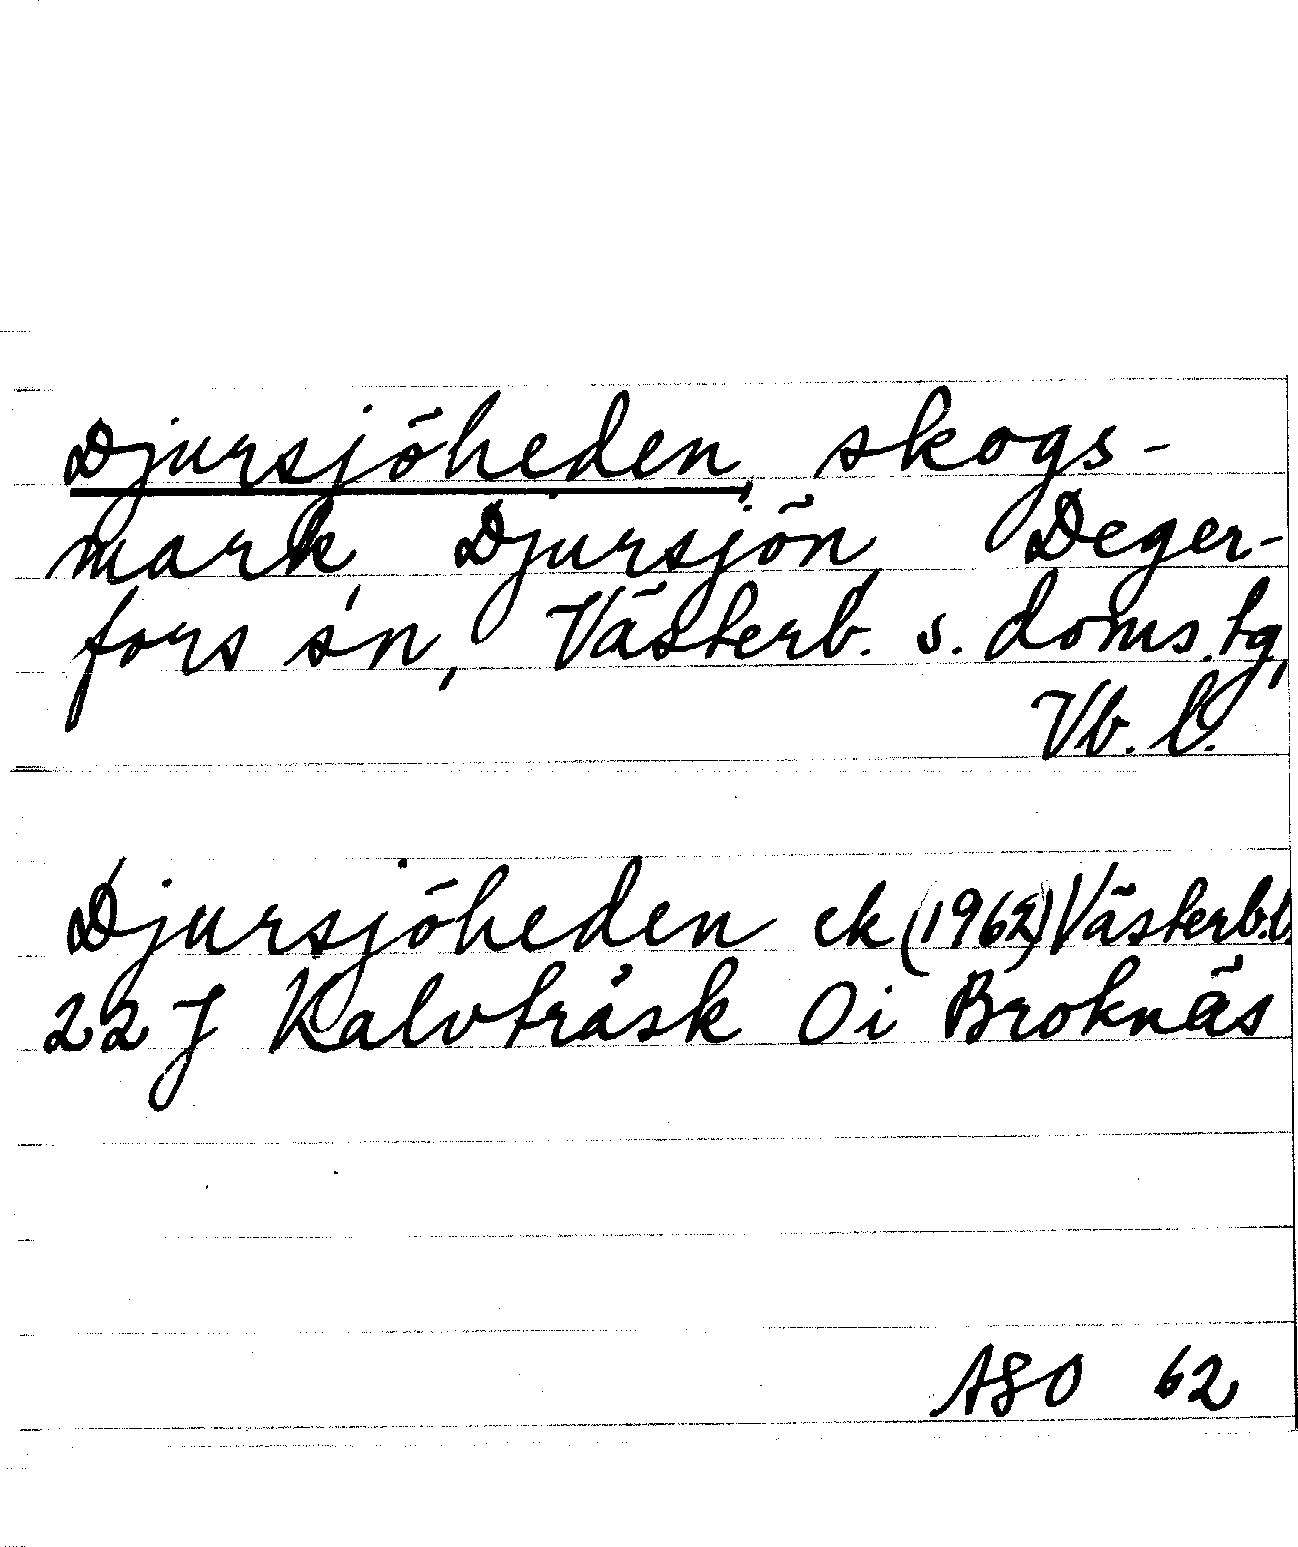 Djursjöheden, skogs-
mark, Djursjön, Deger-
fors sn, Västerb. s. doms.tg,
Vb. l.
Djursjöheden ek (1962) Västerb.l.
22 J Kalvträsk Oi Broknäs
ASO 62